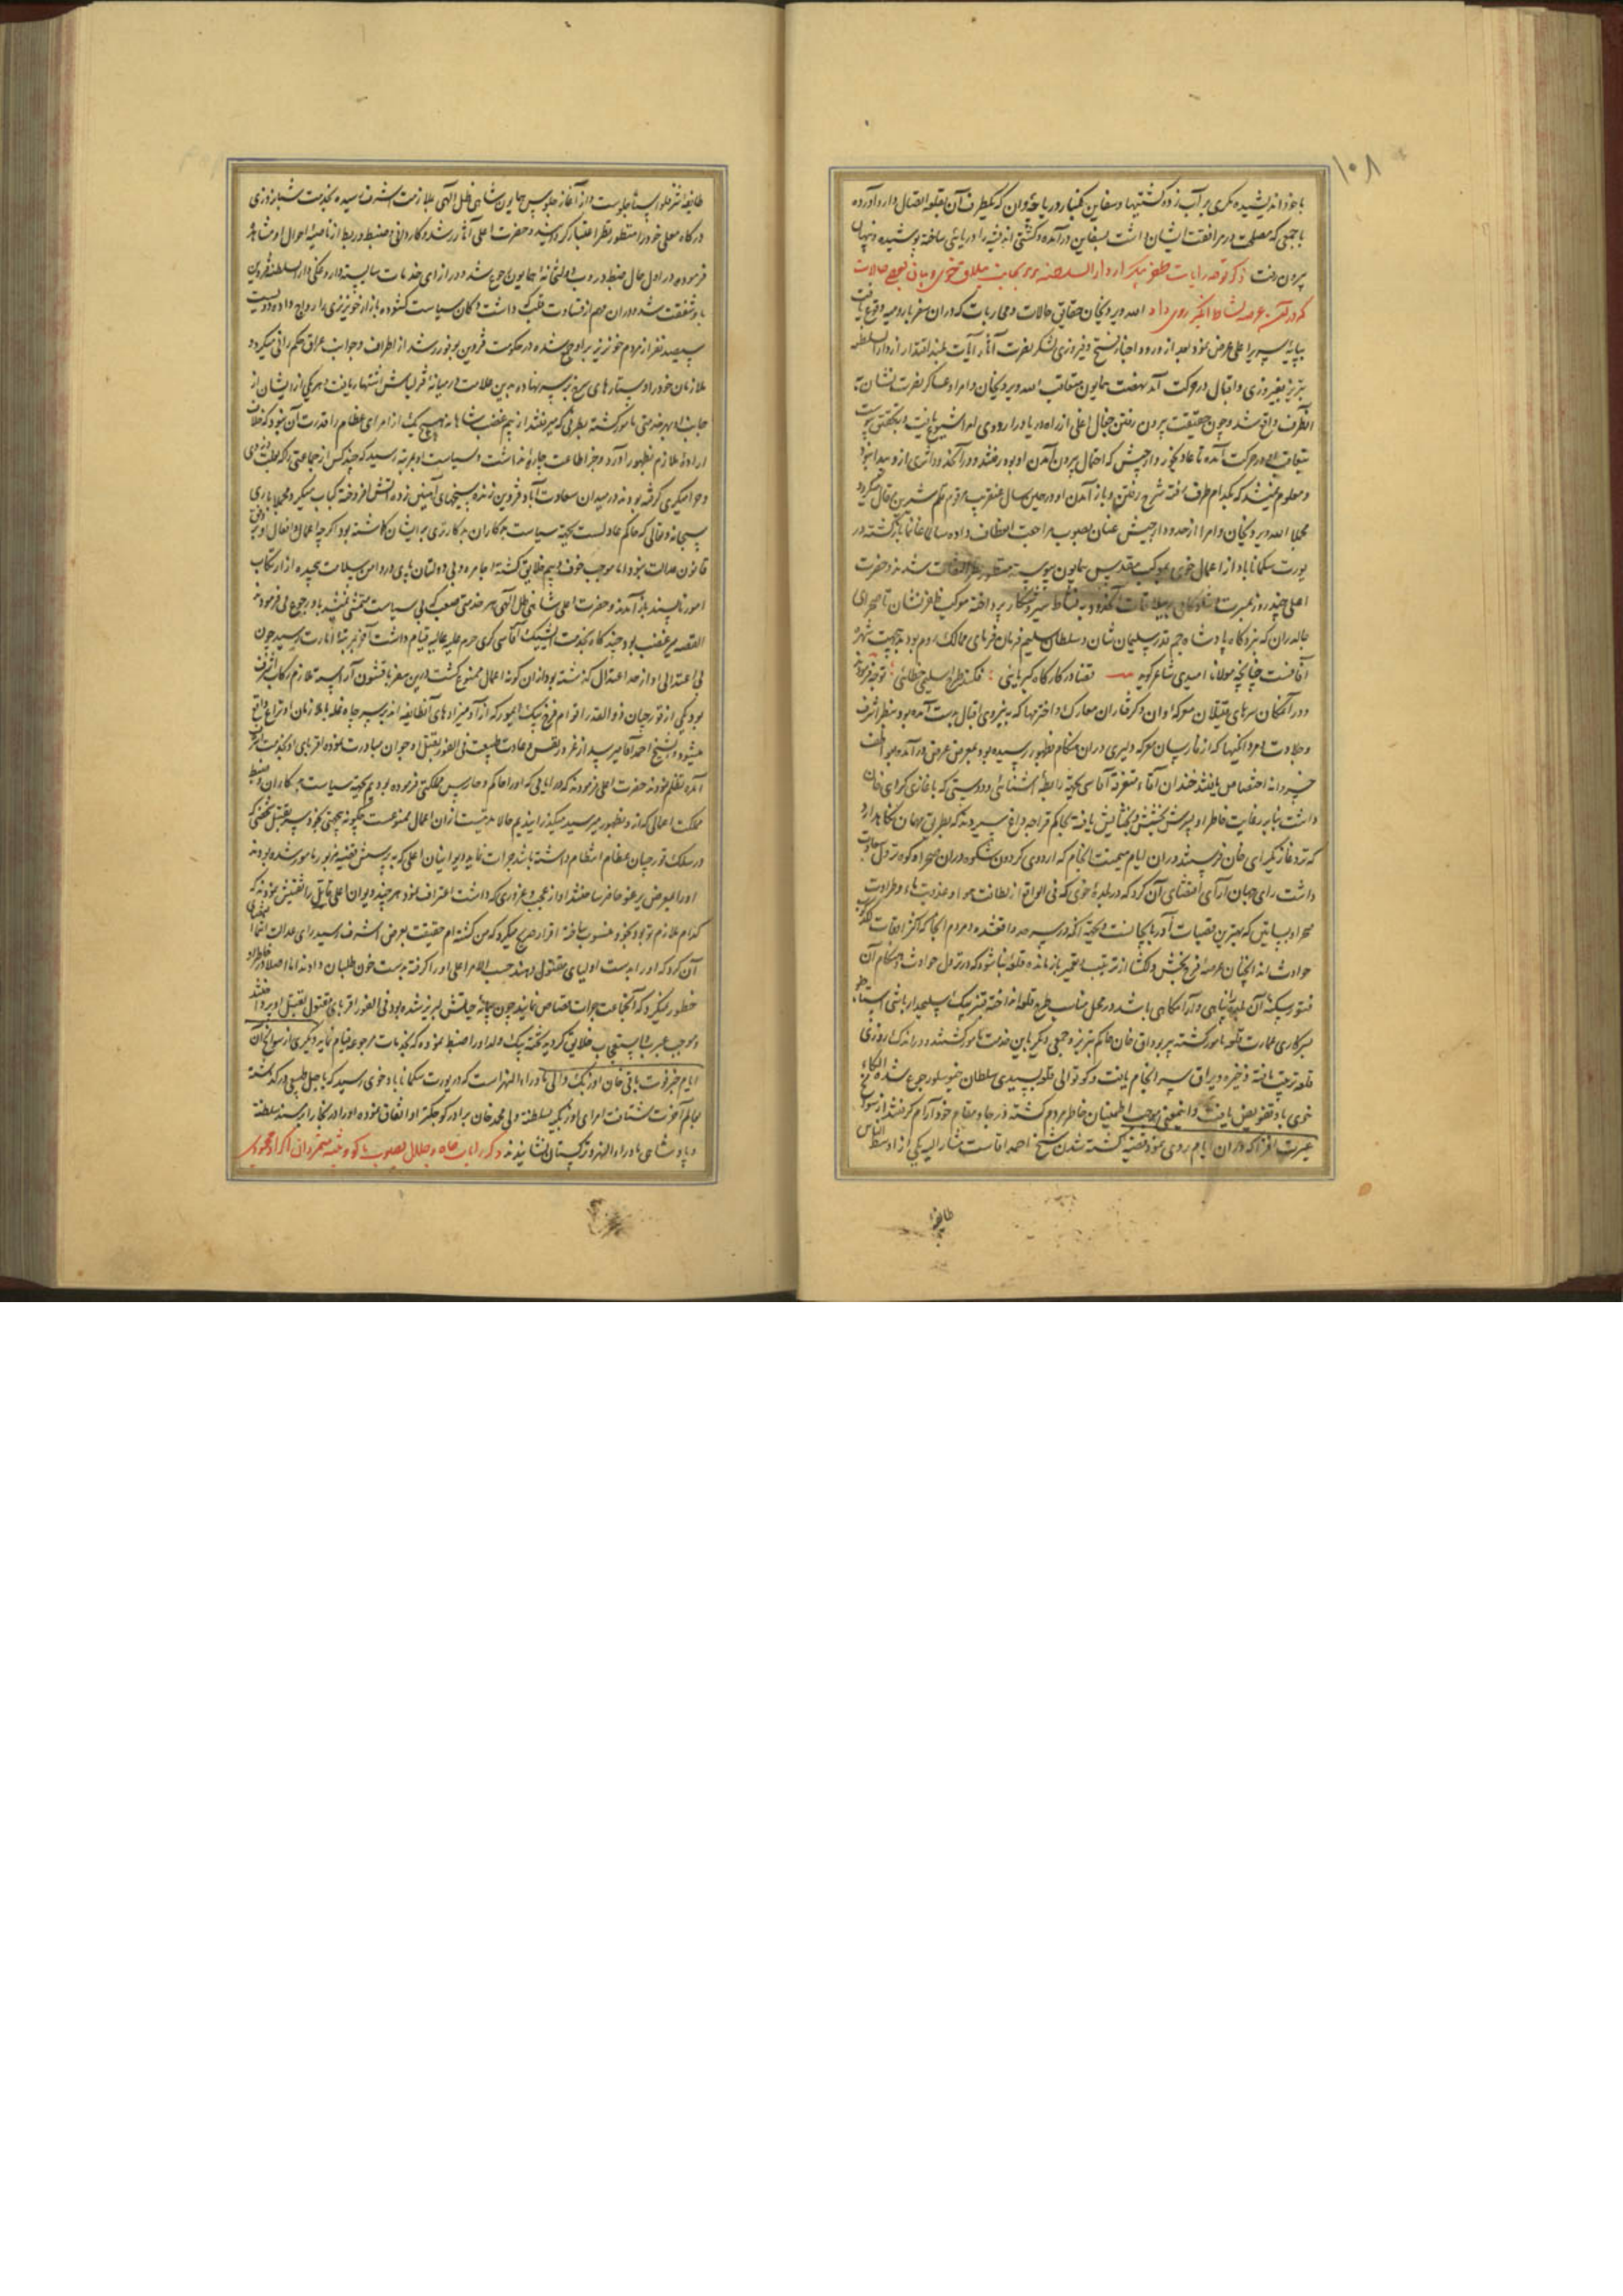 ۱۰۸
با خود اندیشیده مکری بر آب زده کشتیها و سفاین بکنار دریاچهٔ وان که یکطرف آن بقلعه اتصال دارد آورده
با جمعی که مصلحت در مرافقت ایشان داشت بسفاین درآمده و کشتی را دریائی ساخته پوشیده و پنهان
بیرون رفت ذکر توجه رایات ظفر پیکر از دار السلطنه تبریز بجانب ییلاق خوی و بیان بعضی حالات
که در آن عرصه روی داد الله ویردیخان حقایق حالات و محاربات که در آن سفر بارومیه وقوع یافت
بپایهٔ سریر اعلی عرض نمود بعد از ورود اخبار فتح و فیروزی لشکر نصرت آثار آیات بلند اقتدار از دار السلطنه
تبریز بفیروزی و اقبال در حرکت آمد نهضت همایون متعاقب الله ویردیخان و امرا و عساکر نصرت نشان تا
آنطرف واقع شد و چون حقیقت بیرون رفتن جغال اغلی از راه دریا در اردوی او شیوع یافت و بتحقیق پیوست
متعاقب او در حرکت آمده تا عادلجوز و ارجیش که احتمال بیرون آمدن او بود رفتند و در آنحدود اثری از و پیدا نبود
و معلوم نمیشد که بکدام طرف رفته شرح رفتن و باز آمدن او در همین سال عنقریب مرقوم قلم شیرین مقال میگردد
مجملا الله ویردیخان و امرا از حدود ارجیش عنان بصوب مراجعت انعطاف داده سالما غانما بازگشته در
یورت سکمناباد از اعمال خوی بموکب مقدس همایون پیوسته منظور نظر التفات شدند و حضرت
اعلی چند روز بعشرت و شادکامی در ییلاقات آنحدود به نشاط سیر و شکار پرداخته موکب ظفر نشان تا صحرای
چالدران که نبردگاه پادشاه جم قدر سلیمان شان و سلطان سلیم فرمان فرمای ممالک روم بود و بجهت شهرهٔ
آفاقست چنانچه مولانا امیدی شاعر گوید قضا در کارگاه کبریائی : فکند طرح اسلیمی خطائی : توجه فرمودند
و در آنمکان سرهای قتیلان معرکهٔ وان و گرفتاران معارک و اخترمها که به نیروی اقبال بدست آمده بود بنظر اشرف
و جلادت و مردانگیها که از غازیان معرکهٔ دلیری در آن هنگام بظهور رسیده بود بمعرض عرض درآمده بعواطف
خسروانه اختصاص یافتند خندان آقا متفرقه آقاسی بجهة رابطهٔ آشنائی و دوستی که با غازی گرای خان
داشت بنا بر رعایت خاطر او بپرسش بخشش و بخشایش یافته بحاکم قراجه داغ سپردند که بطریق مهمان نگاهدارد
که نزد غازی گرای خان فرستند در آن ایام میمنت انجام که اردوی گردون شکوه در آن صحرا و کوه نزول سعادت
داشت رای جهان آرای اقتضای آن کرد که در بلدهٔ خوی که فی الواقع از لطافت هوا و عذوبت ماء و طراوت
صحرا و بساتین که بهترین قصبات آذربایجانست و بجهة آنکه در سرحد واقع شده و مردم آنجا که اکثر اوقات لکدکوب
حوادث اند آنچنان عرصهٔ فرح بخش دلگشا از ترتیب و تعمیر بازمانده قلعه بنا شود که در نزول حوادث و هنگام آن
فتور سکنهٔ آن بلده را پناهی و آرامگاهی باشد در محل مناسب طرح قلعه انداخته قنبر بیک سلیمدار باشی استاجلو
بسرکاری عمارت قلعه مامور گشته پیر بوداق خان حاکم تبریز و جمعی دیگر باین خدمت مامور گشتند و در اندک روزی
قلعه ترتیب یافته ذخیره و یراق سرانجام یافت و کوتوالی قلعه به سیدی سلطان خنوسلو رجوع شده الکاء
خوی باو تفویض یافت و اینمعنی موجب اطمینان خاطر مردم گشته در جا و مقام خود آرام گرفتند از سوانح
عبرت افزا که در آن ایام روی نمود قضیهٔ کشته شدن شیخ احمد آقاست مشار الیه یکی از اوسط الناس
طایفه
طایفه استاجلوست و از آغاز جلوس همایون شاهی ظل الهی بملازمت اشرف رسیده بخدمت شبانروزی
درگاه معلی خود را منظور نظر اعتبار گردانید و حضرت اعلی آثار رشد و کاردانی و ضبط و ربط از ناصیهٔ احوال او مشاهده
فرموده در اول حال ضبط دروب دولتخانهٔ همایون باو رجوع شد و در ازای خدمات شایسته داروغگی دار السلطنه قزوین
باو شفقت شد و در آن مهم از قساوت قلب که داشت دکان سیاست گشوده بازار خونریزی را رواج داده دویست
سیصد نفر از مردم خونریز بر او جمع شده در حکومت قزوین بوفور رشد از اطراف و جوانب عراق حکم رانی میکرد و
ملازمان خود را دستارهای سرخ بر سر نهاده بدین علامت در میانهٔ قزلباش اشتهار یافت و هر یکی از ایشان از
جانب او بهر خدمتی مامور گشته بطرفی که میرفتند از بیم غضب شاهانه هیچیک از امرای عظام را قدرت آن نبود که خلاف
ارادهٔ ملازم بظهور آورد و بجز اطاعت چاره نداشت و سیاست او بمرتبه رسید که چند کس از جماعتی را که بعلت دزدی
و حرامیگری گرفته بودند در میدان سعادت آباد قزوین زنده بسیخهای آهنین زده آتش افروخته کباب میکرد مجملا باری
سبحانه و تعالی که حاکم عادلست بجهة سیاست بدکاران بدکارتری بر ایشان گماشته بود اگرچه اعمال و افعال او بر وفق
قانون عدالت نبود اما موجب خوف و بیم خلایق گشته اجامره و بی دولتان پای در دامن سلامت پیچیده از ارتکاب
امور ناپسند باز آمدند و حضرت اعلی شاهی ظل الهی هر خدمتی صعب که بی سیاست متمشی نمیشد باو رجوع می فرمودند
القصه میر غضب بود چندگاه بخدمت ایشیک آقاسی گری حرم علیه عالیه قیام داشت آخر بمرتبهٔ امارت رسید چون
بی اعتدالی او از حد اعتدال گذشته بود از آن گونه اعمال ممنوع گشت در این سفر با قشون آراسته ملازم رکاب اشرف
بود یکی از قورچیان ذوالقدر اقوام فرخ بیک ایمور که از آدمیزادهای آنطایفه اند بر سر چاه غله با ملازمان او نزاع واقع
میشود و شیخ احمد آقا میرسد از غرور نفس و عادت طبیعت فی الفور بقتل او جوان مبادرت نموده اقربای او بخدمت اشرف
آمده تظلم نمودند حضرت اعلی فرمودند که در ایامی که او را حاکم و حارس مملکتی فرموده بودیم بجهة سیاست بدکاران و ضبط
مملکت اعمالی که از و بظهور میرسید میگذرانیدیم حالا مدتیست از آن اعمال ممنوعست چگونه بجهتی بخود سر بقتل شخصی که
در سلک قورچیان عظام انتظام داشته باشد جرات نماید دیوانیان اعلی که به پرسش قضیه مزبور مامور شده بودند
او را بمعرض غرغو حاضر ساختند او از عجب و غروری که داشت اعتراف نمود هر چند دیوان اعلی قاتل را تفتیش نمودند که
کدام ملازم تو بود بخود منسوب ساخته اقرار صریح میکرد که من کشته ام حقیقت بعرض اشرف رسید رای عدالت اقتضای
آن کرد که او را بدست اولیای مقتول دهند حسب الامر اعلی او را گرفته بدست خون طلبان دادند اما اصلا در خاطر او
خطور نمیکرد که آنجماعت جرات قصاص نمایند چون پیمانهٔ حیاتش لبریز شده بود فی الفور اقربای مقتول بقتل او پرداختند
و موجب عبرت و استعجاب خلایق گردید تخته بیک ولد او را ضبط نموده که بخدمات مرجوعه قیام نماید دیگری از سوانح آن
ایام خبر فوت باقی خان اوزبک والی ماوراء النهر است که در یورت سکمناباد خوی رسید که باجل طبیعی درگذشته
بعالم آخرت شتافت امرای اوزبکیه بسلطنه ولی محمد خان برادر کوچکتر او اتفاق نموده او را در بخارا بر مسند سلطنه
و پادشاهی ماوراء النهر و ترکستان نشانیدند ذکر رایات جاه و جلال بصوب ماکو و تنبیه متمردان اکراد محمودی